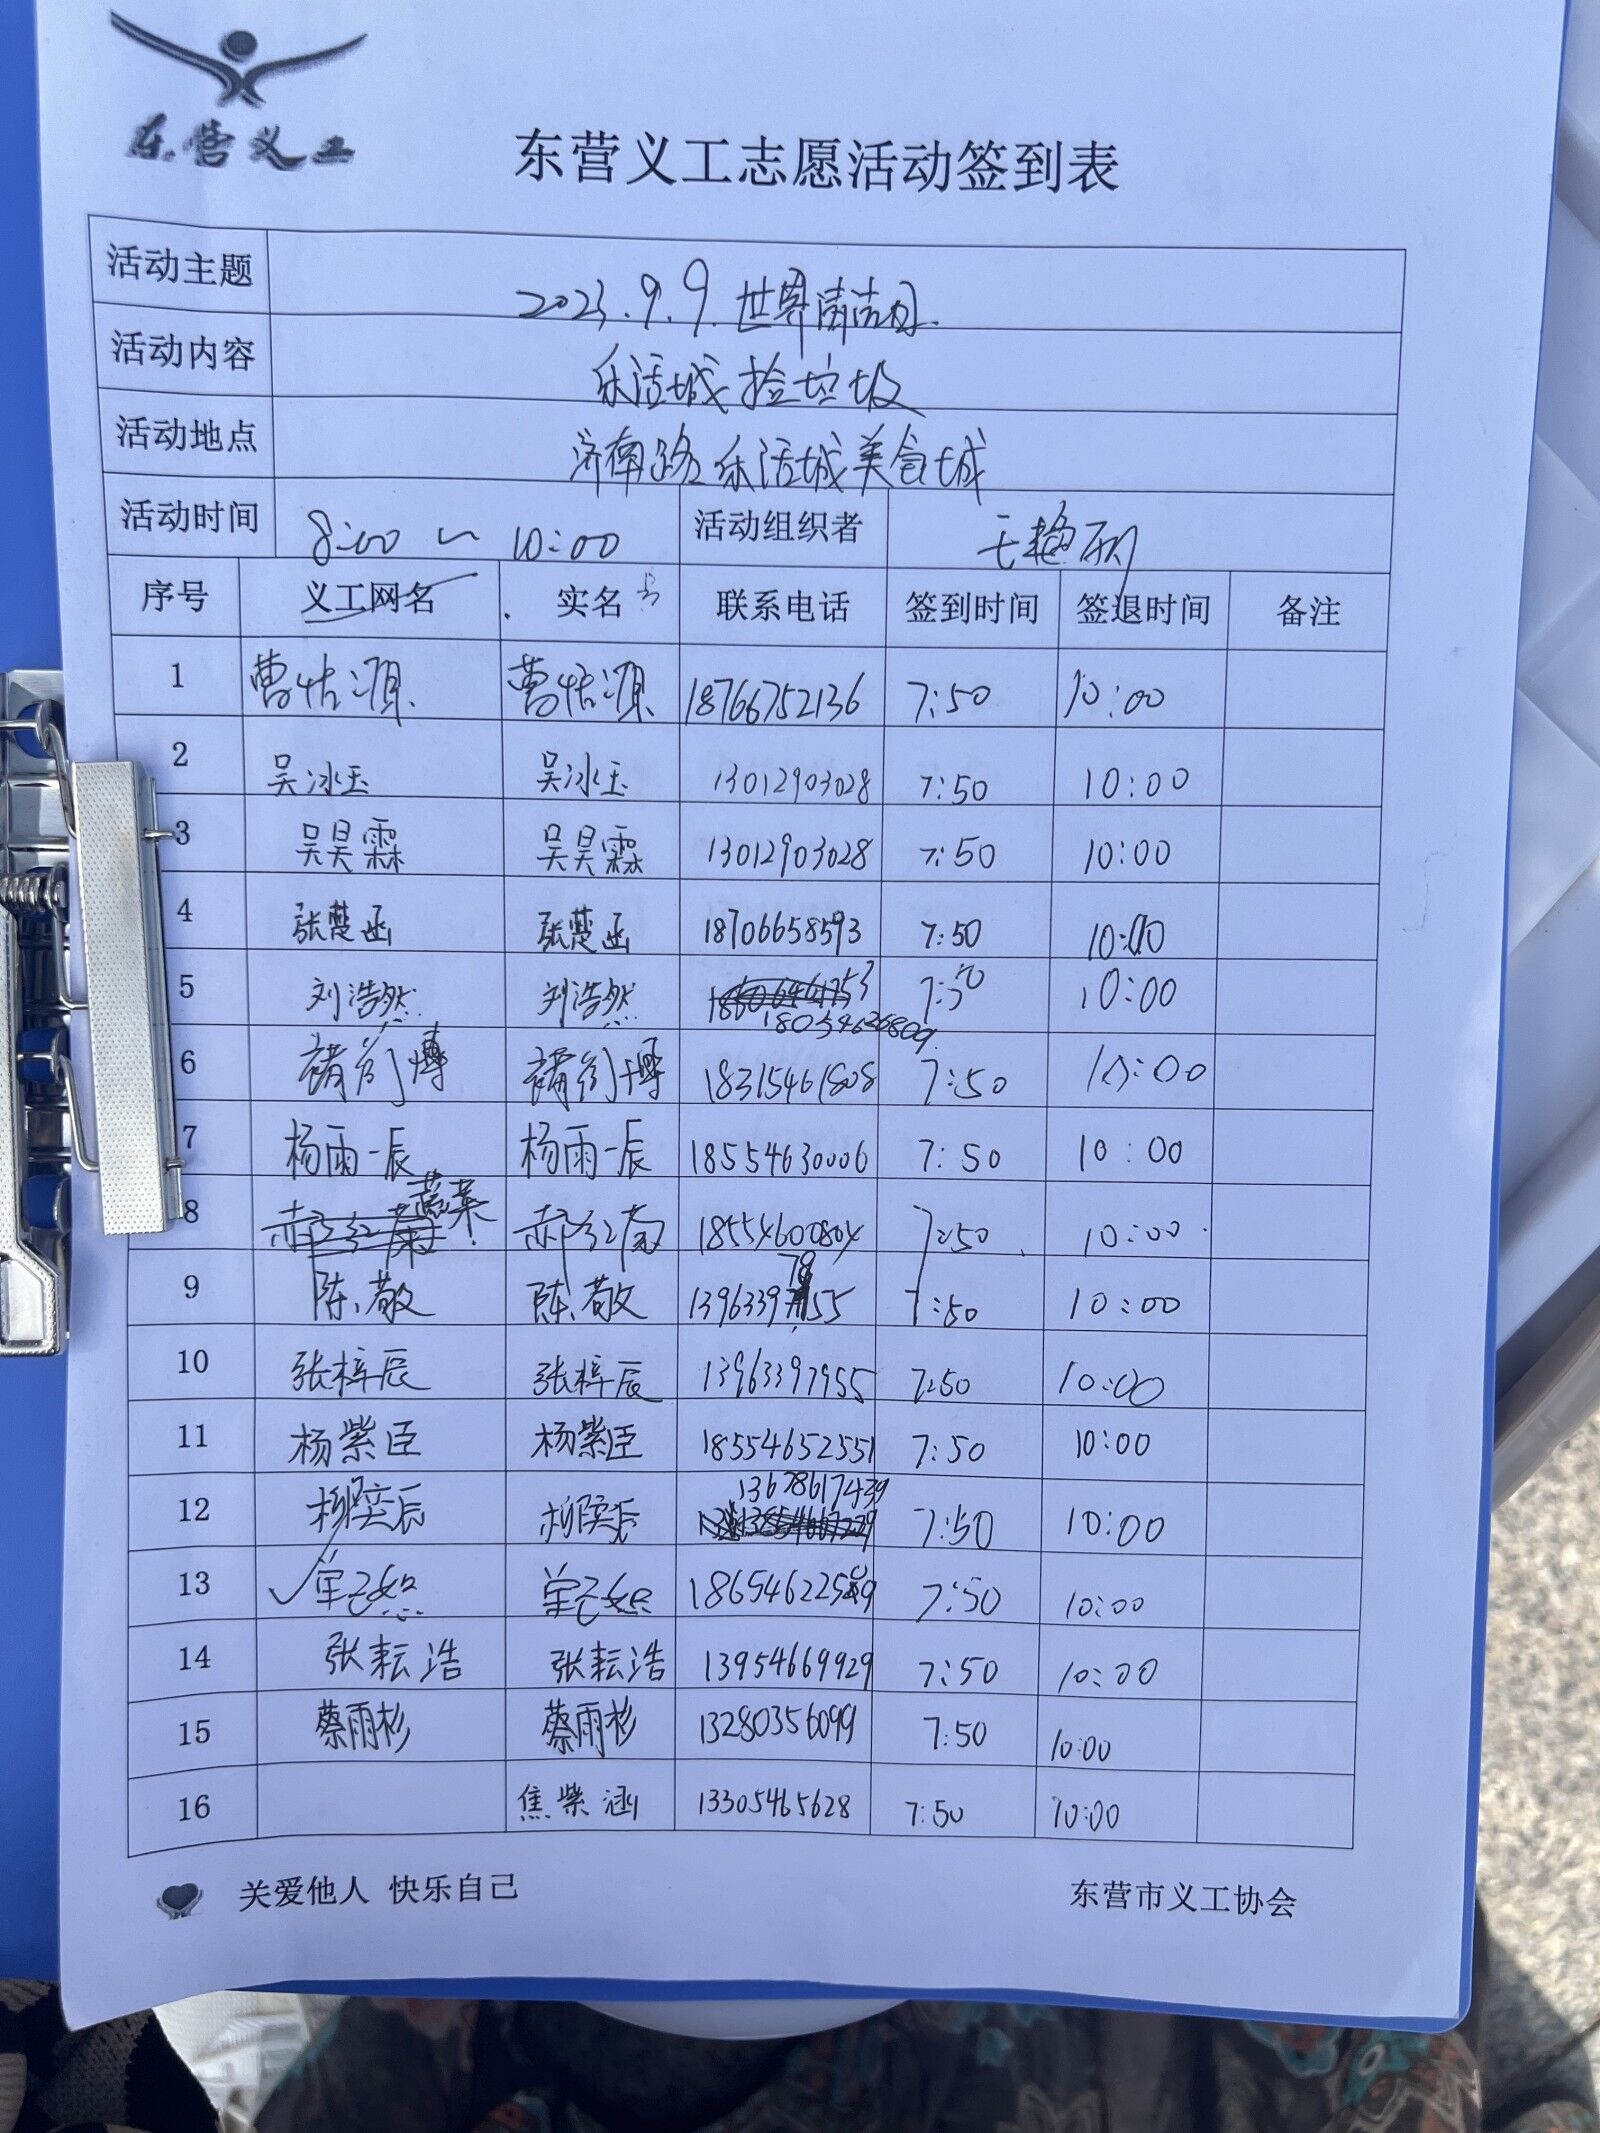 东营义工
东营义工志愿活动签到表
活动主题 2023.9.9.世界清洁日.
活动内容 乐活城捡垃圾
活动地点 济南路乐活城美食城
活动时间 8:00 ~ 10:00 活动组织者
序号 义工网名 实名 联系电话 签到时间 签退时间 备注
1 曹恬源 曹恬源 18766752136 7:50 10:00
2 吴冰玉 吴冰玉 13012903028 7:50 10:00
3 吴昊霖 吴昊霖 13012903028 7:50 10:00
4 张楚函 张楚函 18706658593 7:50 10:00
5 刘浩然 刘浩然 18054626809 7:50 10:00
6 18315461808 7:50 10:00
7 杨雨辰 杨雨辰 18554630006 7:50 10:00
8 18554600804 7:50 10:00
9 陈敬 陈敬 7:50 10:00
10 张梓辰 张梓辰 13963397955 7:50 10:00
11 杨紫臣 杨紫臣 18554652551 7:50 10:00
12 柳奕辰 柳奕辰 13678617439 7:50 10:00
13 7:50 10:00
14 张耘浩 张耘浩 13954669929 7:50 10:00
15 蔡雨杉 蔡雨杉 13280356099 7:50 10:00
16 焦紫涵 13305465628 7:50 10:00
关爱他人 快乐自己 东营市义工协会